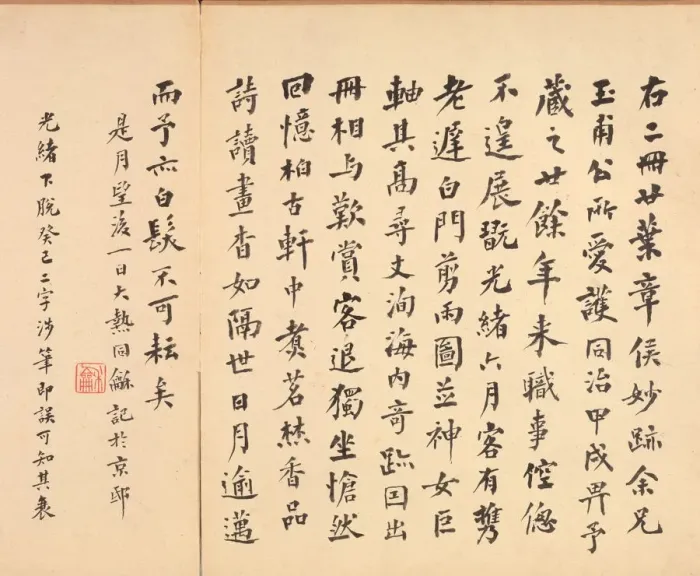 右二冊廿葉章侯妙跡余兄
玉甫公所愛護同治甲戌畀予
藏之廿餘年来職事倥傯
不遑展翫光緒六月客有攜
老遲白門剪雨圖並神女巨
軸其高尋丈洵海內奇跡因出
冊相与歎賞客退獨坐愴然
回憶柏古軒中煑茗焚香品
詩讀畫杳如隔世日月逾邁
而予亦白髮不可耘矣
是月望後一日大熱同龢記於京邸
光緒下脫癸巳二字涉筆即誤可知其衰